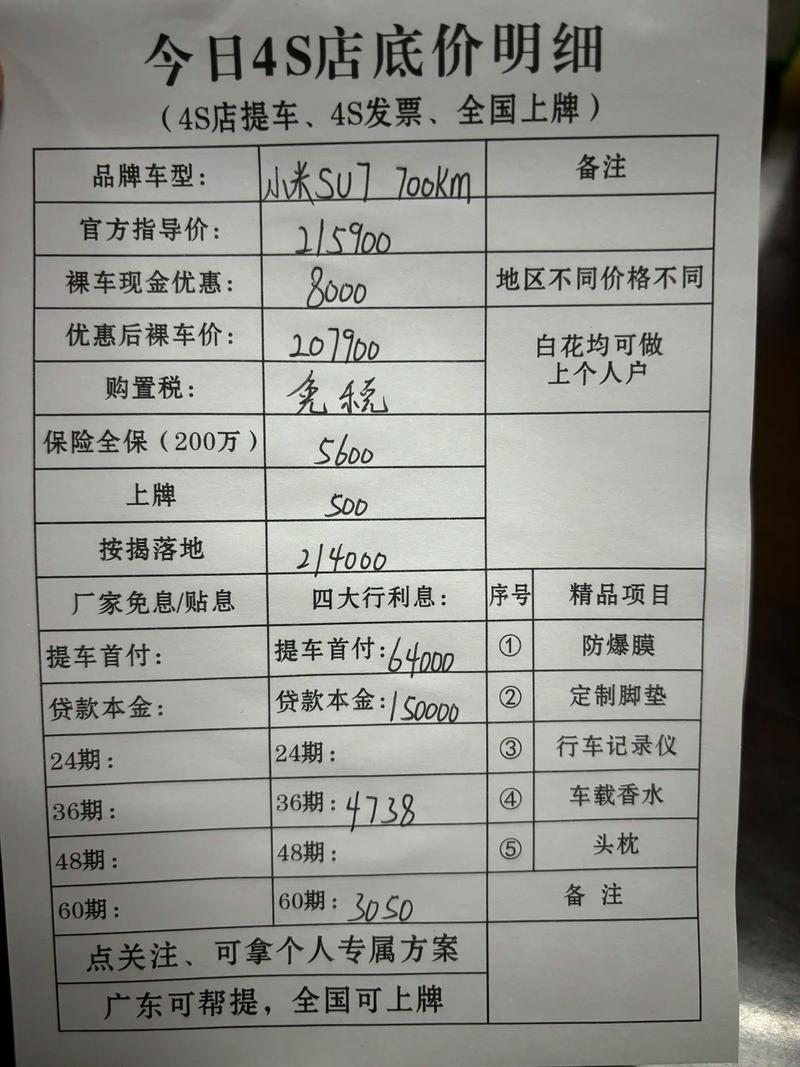 今日4S店底价明细
（4S店提车、4S发票、全国上牌）
品牌车型： 小米SU7 700KM 备注
官方指导价： 215900
裸车现金优惠： 8000 地区不同价格不同
优惠后裸车价： 207900 白花均可做
上个人户
购置税： 免税
保险全保（200万） 5600
上牌 500
按揭落地 214000
厂家免息/贴息 四大行利息： 序号 精品项目
提车首付： 提车首付：64000 ① 防爆膜
贷款本金： 贷款本金：150000 ② 定制脚垫
24期： 24期： ③ 行车记录仪
36期： 36期：4738 ④ 车载香水
48期： 48期： ⑤ 头枕
60期： 60期：3050 备注
点关注、可拿个人专属方案
广东可帮提，全国可上牌